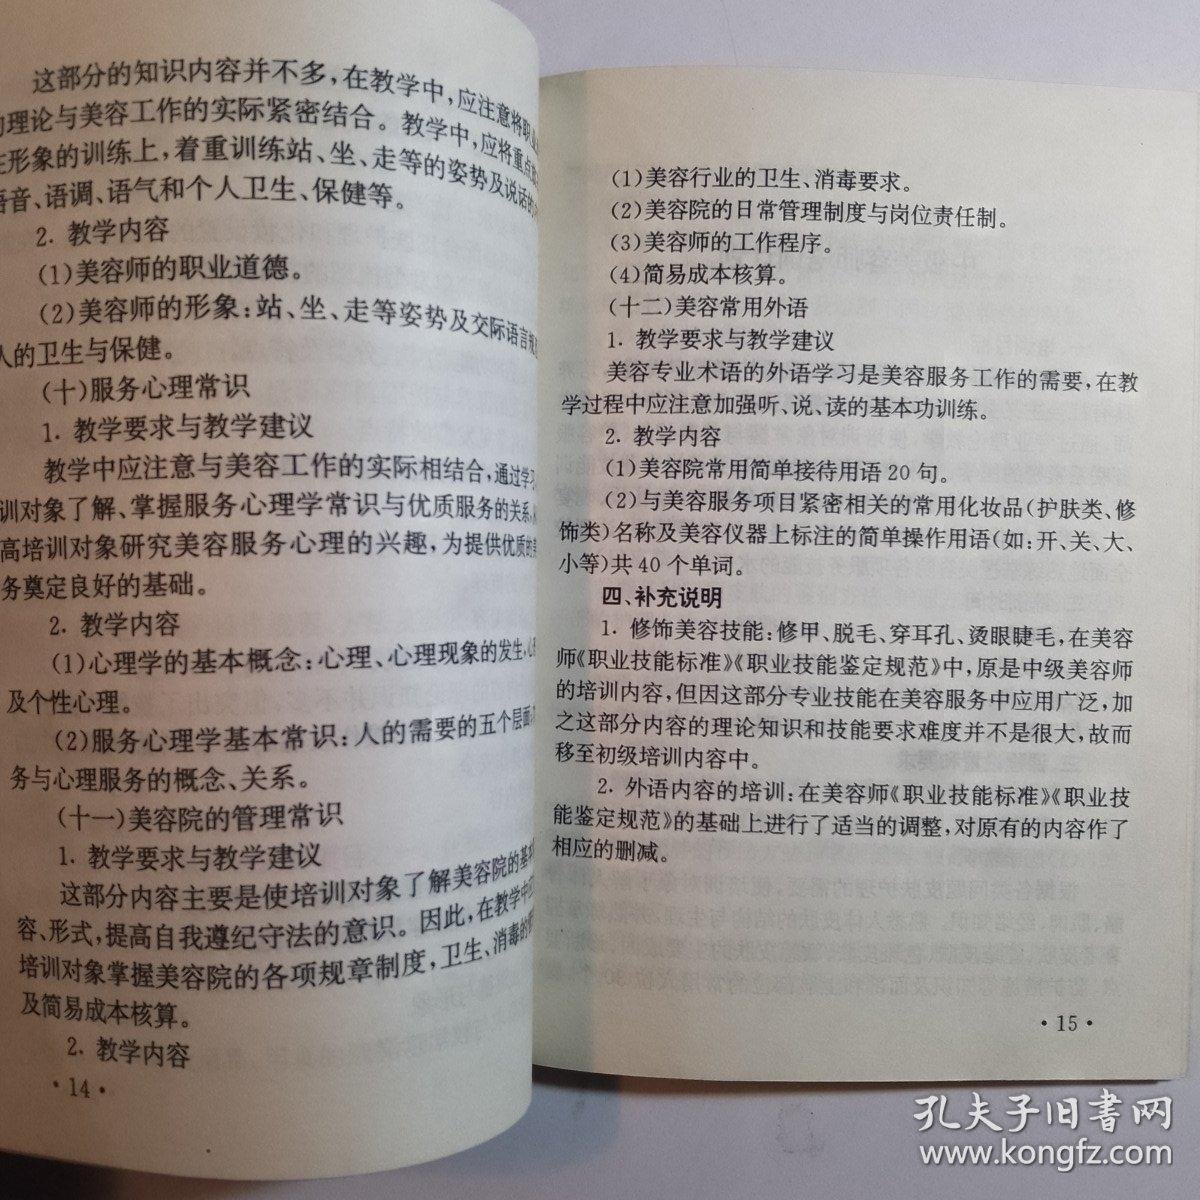 这部分的知识内容并不多，在教学中，应注意将职业
理论与美容工作的实际紧密结合。教学中，应将重点
形象的训练上，着重训练站、坐、走等的姿势及说话的
语音、语调、语气和个人卫生、保健等。
2. 教学内容
(1)美容师的职业道德。
(2)美容师的形象：站、坐、走等姿势及交际语言规
人的卫生与保健。
(十)服务心理常识
1. 教学要求与教学建议
教学中应注意与美容工作的实际相结合，通过学习
训对象了解、掌握服务心理学常识与优质服务的关系，
高培训对象研究美容服务心理的兴趣，为提供优质的
务奠定良好的基础。
2. 教学内容
(1)心理学的基本概念：心理、心理现象的发生，
及个性心理。
(2)服务心理学基本常识：人的需要的五个层面
务与心理服务的概念、关系。
(十一)美容院的管理常识
1. 教学要求与教学建议
这部分内容主要是使培训对象了解美容院的基本
容、形式，提高自我遵纪守法的意识。因此，在教学中
培训对象掌握美容院的各项规章制度，卫生、消毒的
及简易成本核算。
2. 教学内容
·14·
(1)美容行业的卫生、消毒要求。
(2)美容院的日常管理制度与岗位责任制。
(3)美容师的工作程序。
(4)简易成本核算。
(十二)美容常用外语
1. 教学要求与教学建议
美容专业术语的外语学习是美容服务工作的需要，在教
学过程中应注意加强听、说、读的基本功训练。
2. 教学内容
(1)美容院常用简单接待用语20句。
(2)与美容服务项目紧密相关的常用化妆品(护肤类、修
饰类)名称及美容仪器上标注的简单操作用语(如：开、关、大、
小等)共40个单词。
四、补充说明
1. 修饰美容技能：修甲、脱毛、穿耳孔、烫眼睫毛，在美容
师《职业技能标准》《职业技能鉴定规范》中，原是中级美容师
的培训内容，但因这部分专业技能在美容服务中应用广泛，加
之这部分内容的理论知识和技能要求难度并不是很大，故而
移至初级培训内容中。
2. 外语内容的培训：在美容师《职业技能标准》《职业技
能鉴定规范》的基础上进行了适当的调整，对原有的内容作了
相应的删减。
·15·
孔夫子旧书网
www.kongfz.com